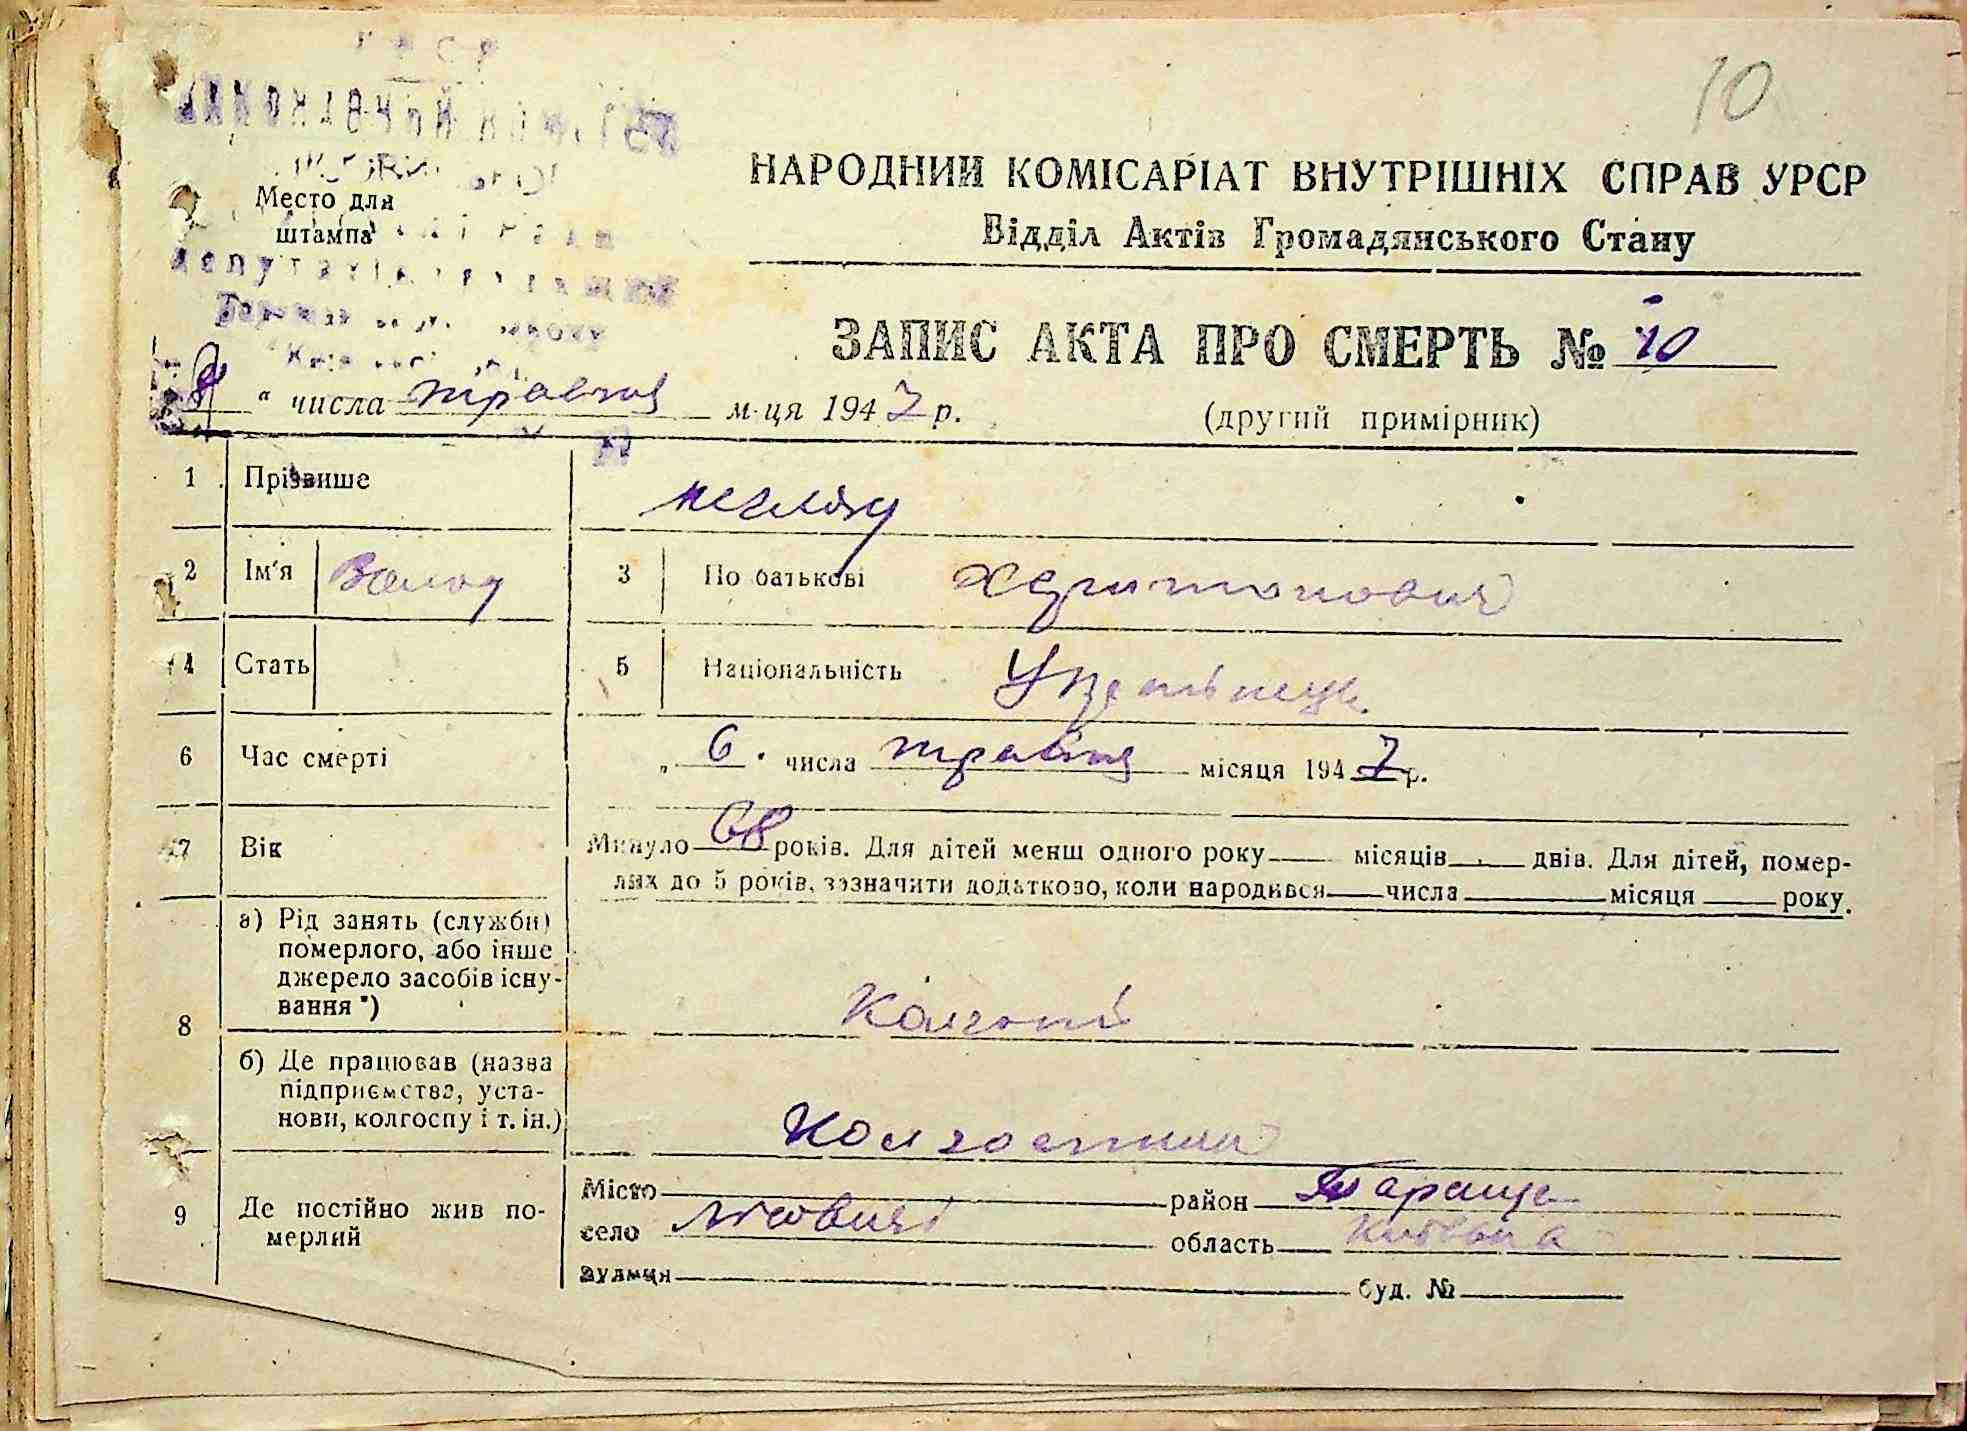 10
УРСР
Место для
штампа
НАРОДНИЙ КОМІСАРІАТ ВНУТРІШНІХ СПРАВ УРСР
Відділ Актів Громадянського Стану
ЗАПИС АКТА ПРО СМЕРТЬ № 10
8 " числа травня м-ця 1947 р.
(другий примірник)
1 Прізвище
2 Ім'я Волод 3 По батькові Харитонович
4 Стать 5 Національність Українець
6 Час смерті „ 6 числа травня місяця 1947 р.
7 Вік Минуло 68 років. Для дітей менш одного року місяців днів. Для дітей, помер-
лих до 5 років, зазначити додатково, коли народився числа місяця року.
8 а) Рід занять (служби)
померлого, або інше
джерело засобів існу-
вання *)
б) Де працював (назва
підприємства, уста-
нови, колгоспу і т. ін.)
9 Де постійно жив по-
мерлий
Місто район Тараща
село Лісовичі область Київська
вулиця буд. №